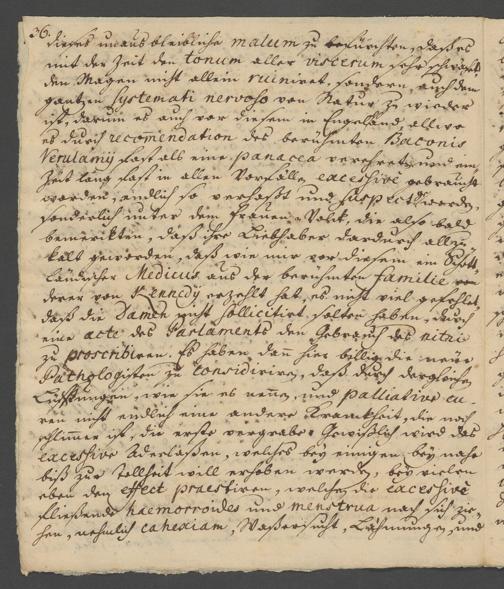 36.
dieses unausbleibliche malum zu befürchten, daß es
mit der Zeit den tonum aller viscerum sehr schwächt
den Magen nicht allein ruiniret, sondern, auch dem
gantzen Systemati nervoso von Natur zu wieder
ist, darum es auch vor diesem in Engeland, allwo
es durch recomendation des berühmten Baconis
Verulamij fast als eine panacea verehret, und eine
Zeit lang fast in allen Vorfällen excessivè gebraucht
worden, endlich so verhaßt und suspect worden,
sonderlich unter dem Frauen-Volk, die alßo bald
bemerckten, daß ihre Liebhaber dardurch allzu
kalt geworden, daß wie mir vor diesem ein Schott-
ländischer Medicus aus der berühmten familie
derer von Kennedy erzehlt hat, es nicht viel gefehlet,
daß die Damen nicht sollicitirt solten haben, durch
eine acte des Parlaments den Gebrauch des nitri
zu proscribiren. Es haben dann hier billig die neue
Pathologisten zu considiriren, daß durch dergleichen
Lüfftungen, wie sie es nennen, und palliative cu-
ren nicht endlich eine andere Kranckheit, die noch
schlimer ist, die erste vergrabe. Gewißlich wird das
excessive Aderlassen, welches bey einigen bey nahe
biß zur Tollheit will erhoben werden, bey vielen
eben den effect praestiren, welchen die excessivè
fließende haemorroides und menstrua nach sich zie-
hen, nehmlich cahexiam, Waßersucht, Lähmungen, und